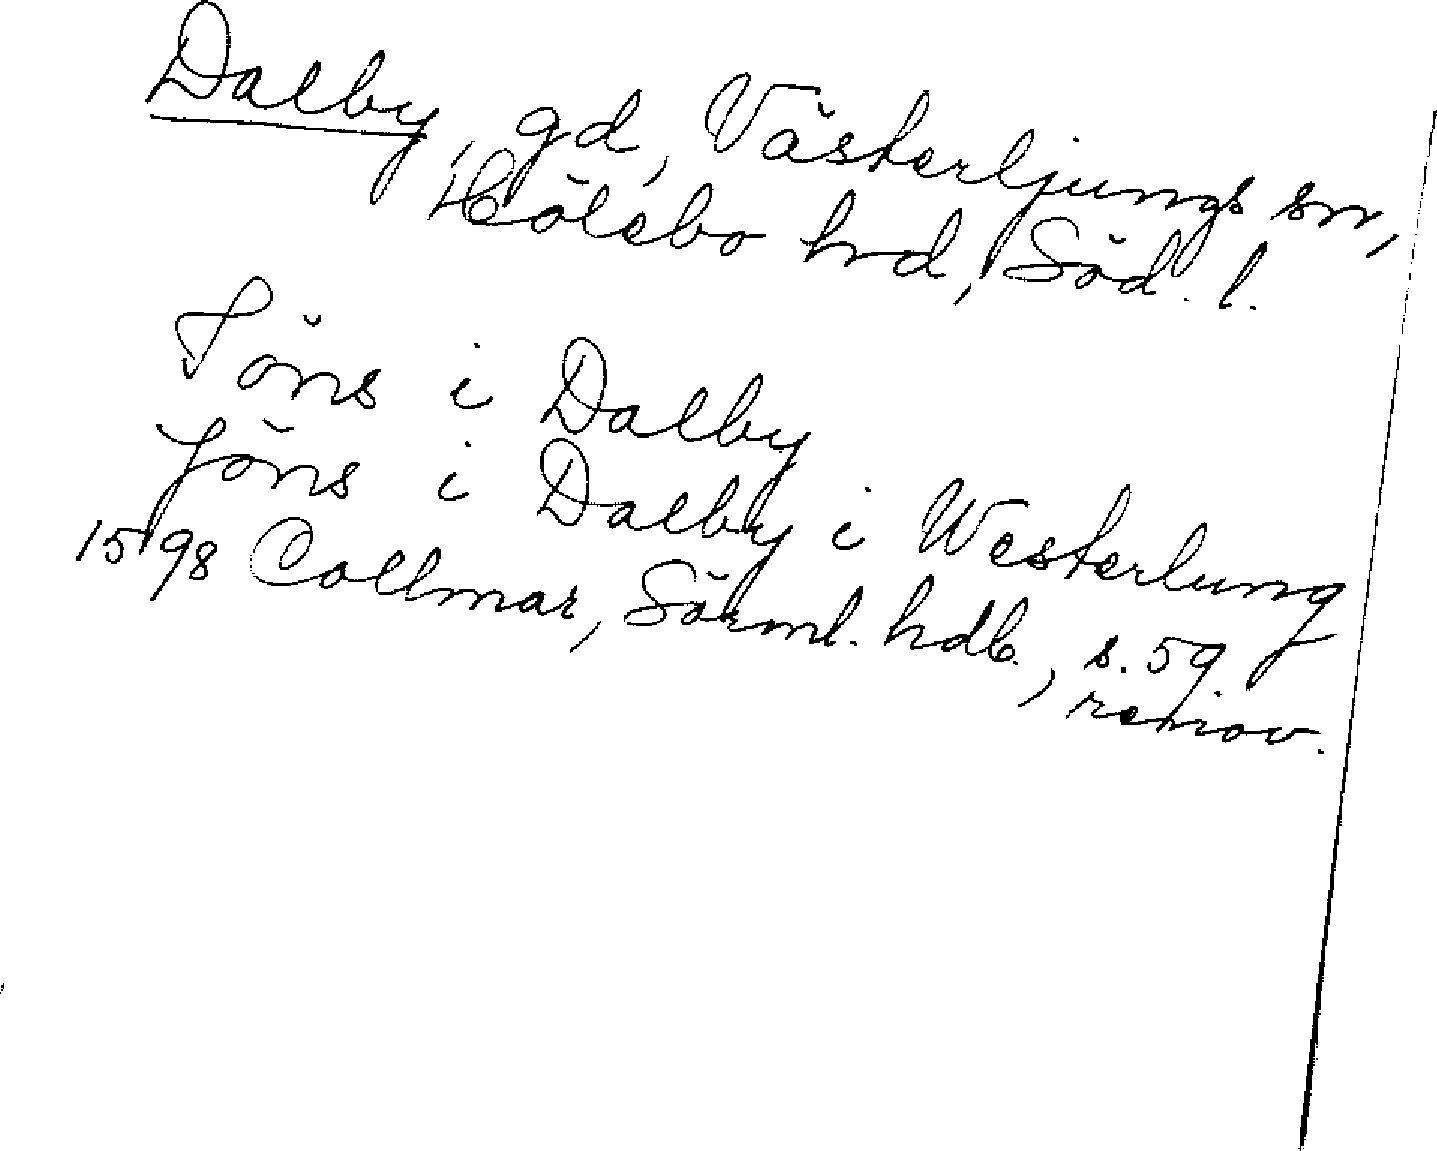 Dalby, gd, Västerljungs sn,
Hölebo hrd, Söd. l.
Jöns i Dalby
Jöns i Dalby i Westerlung
1598 Collmar, Sörml. hdb., s. 59